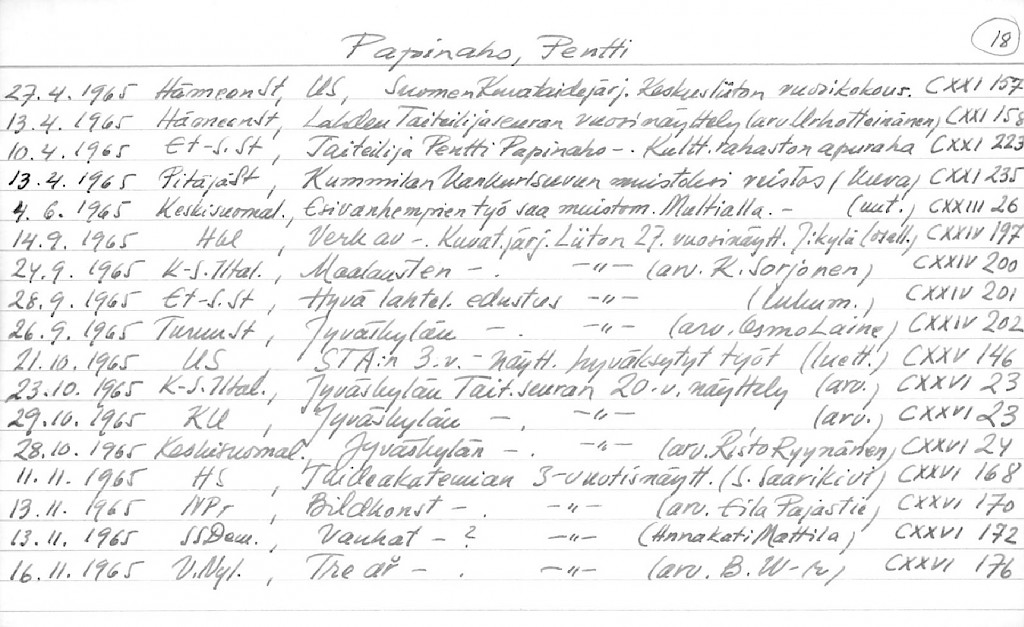 18
Papinaho, Pentti
27.4.1965 HämeenSt, US, Suomen Kuvataidejärj. Keskusliiton vuosikokous. CXXI 157
13.4.1965 Hämeenst, Lahden Taiteilijaseuran vuosinäyttely (arv. Urho Heinänen) CXXI 158
10.4.1965 Et-S.St, Taiteilija Pentti Papinaho -. Kultt.rahaston apuraha CXXI 223
13.4.1965 PitäjäSt, Kummilan Kankurisuvun muistokivi veistos (kuva) CXXI 235
4.6.1965 Keskisuomal., Esivanhempien työ saa muistom. Multialla. - (uut.) CXXIII 26
14.9.1965 Hbl, Verk av -. Kuvat.järj. Liiton 27. vuosinäytt. J:kylä CXXIV 197
24.9.1965 K-S.Iltal., Maalausten -. -"- (arv. K. Sorjonen) CXXIV 200
28.9.1965 Et-S.St, Hyvä lahtel. edustus -"- (lukum.) CXXIV 201
26.9.1965 TurunSt, Jyväskylän -. -"- (arv. Osmo Laine) CXXIV 202
21.10.1965 US, STA:n 3.v.-näytt. hyväksytyt työt (luett.) CXXV 146
23.10.1965 K-S.Iltal., Jyväskylän Tait.seuran 20-v. näyttely (arv.) CXXVI 23
29.10.1965 KU, Jyväskylän -. -"- (arv.) CXXVI 23
28.10.1965 Keskisuomal., Jyväskylän -. -"- (arv. Risto Ryynänen) CXXVI 24
11.11.1965 HS, Taideakatemian 3-vuotisnäytt. (S. Saarikivi) CXXVI 168
13.11.1965 NPr, Bildkonst -. -"- (arv. Eila Pajastie) CXXVI 170
13.11.1965 SSDem., Vanhat - ? -"- (Annakati Mattila) CXXVI 172
16.11.1965 V.Nyl., Tre år -. -"- (arv. B. W-r) CXXVI 176